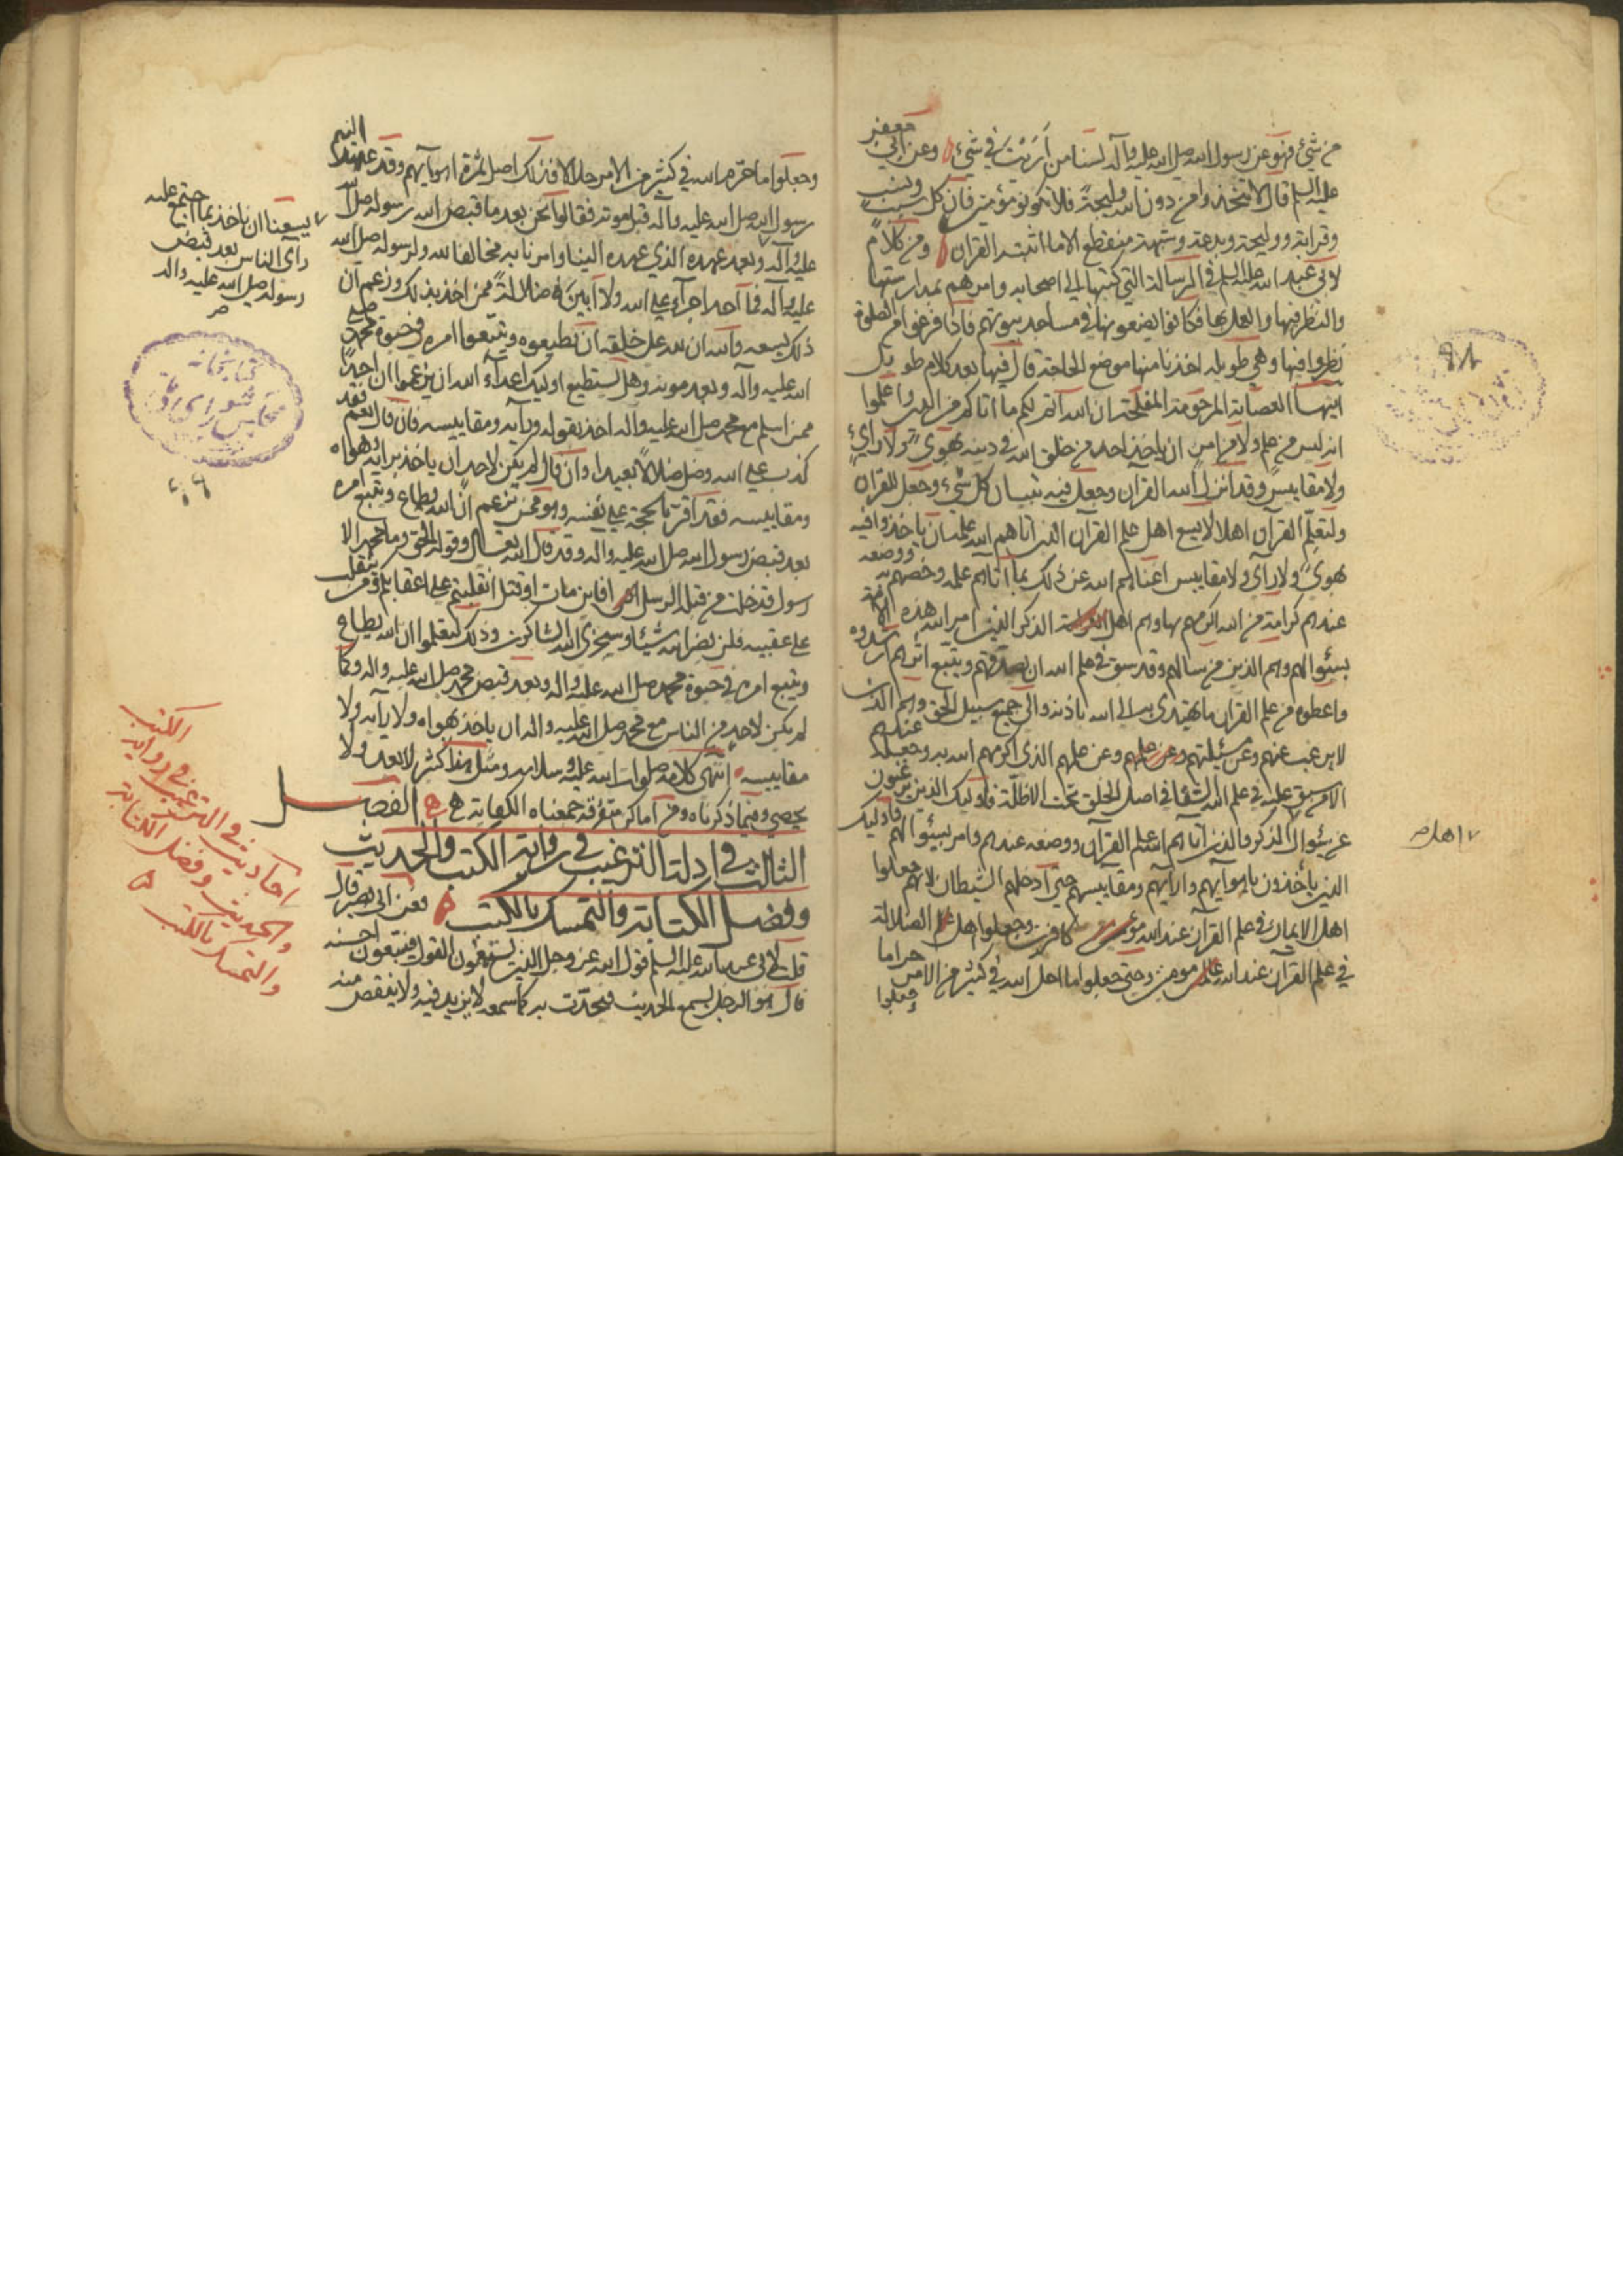 من شيء فهو عن رسول الله صلى الله عليه وآله لسنا من أرَيْتَ في شيء وعن أبي جعفر
عليه السلم قال لا تتخذوا من دون الله وليجة فلا تكونوا مؤمنين فان كل سبب ونسب
وقرابة ووليجة وبدعة وشبهة منقطع الا ما اثبته القران ومن كلام
لابي عبد الله عليه السلم في الرسالة التي كتبها الى اصحابه وامرهم بمدارستها
والنظر فيها والعمل بها فكانوا يضعونها في مساجد بيوتهم فاذا فرغوا من الصلوة
نظروا فيها وهي طويلة اخذنا منها موضع الحاجة قال فيها بعد كلام طويل
ايتها العصابة المرحومة المفلحة ان الله اتم لكم ما اتاكم من الخير واعلموا
انه ليس من علم الله ولا من امره ان ياخذ احد من خلق الله في دينه بهوى ولا رأي
ولا مقاييس وقد انزل الله القرآن وجعل فيه تبيان كل شيء وجعل للقرآن
ولتعلم القرآن اهلا لا يسع اهل علم القرآن الذين اتاهم الله علمه ان ياخذوا فيه
بهوى ولا رأي ولا مقاييس اغناهم الله عن ذلك بما اتاهم من علمه وخصهم به ووضعه
عندهم كرامة من الله اكرمهم بها وهم اهل الذكر الذين امر الله هذه الامة
بسؤالهم وهم الذين من سالهم وقد سبق في علم الله ان يصدقهم ويتبع اثرهم ارشدوه
واعطوه من علم القرآن ما يهتدي به الى الله باذنه والى جميع سبيل الحق وهم الذين
لا يرغب عنهم وعن مسئلتهم وعن علمهم الذي اكرمهم الله به وجعله عندهم
الا من سبق عليه في علم الله الشقا في اصل الخلق تحت الاظلة فاولئك الذين يرغبون
عن سؤال الذكر والذين اتاهم الله علم القرآن ووضعه عندهم وامر بسؤالهم فاولئك
الذين يأخذون باهوائهم وآرائهم ومقاييسهم حتى دخلهم الشيطان لانهم جعلوا
اهل الايمان في علم القرآن عند الله كافرين وجعلوا اهل الضلالة
في علم القرآن عند الله مومنين وحتى جعلوا ما احل الله في كثير من الامر حراما
وجعلوا
اهل صح
وجعلوا ما حرم الله في كثير من الامر حلالا فذلك اصل ثمرة اهوائهم وقد عهد اليهم
رسول الله صلى الله عليه وآله قبل موته فقالوا نحن بعد ما قبض الله رسوله صلى الله
عليه وآله وبعد عهده الذي عهده الينا وامرنا به مخالفا لله ولرسوله صلى الله
عليه وآله فما احد اجرأ على الله ولا ابين ضلالة ممن اخذ بذلك وزعم ان
ذلك يسعه والله ان لله على خلقه ان يطيعوه ويتبعوا امره في حيوة محمد صلى
الله عليه وآله وبعد موته وهل يستطيع اولئك اعداء الله ان يزعموا ان احدا
ممن اسلم مع محمد صلى الله عليه وآله اخذ بقوله ورأيه ومقاييسه فان قال نعم فقد
كذب على الله وضل ضلالا بعيدا وان قال لا لم يكن لاحد ان ياخذ برأيه وهواه
ومقاييسه فقد اقر بالحجة على نفسه وهو ممن يزعم ان الله يطاع ويتبع امره
بعد قبض رسول الله صلى الله عليه وآله وقد قال الله تعالى وقوله الحق وما محمد الا
رسول قد خلت من قبله الرسل افاين مات او قتل انقلبتم على اعقابكم ومن ينقلب
على عقبيه فلن يضر الله شيئا وسيجزي الله الشاكرين وذلك لتعلموا ان الله يطاع
ويتبع امره في حيوة محمد صلى الله عليه وآله وبعد قبض محمد صلى الله عليه وآله وكما
لم يكن لاحد من الناس مع محمد صلى الله عليه وآله ان ياخذ بهواه ولا رأيه ولا
مقاييسه انتهى كلامه صلوات الله عليه وسلامه ومثل هذا كثير لا يعد ولا
يحصى وفيما ذكرناه ومن اماكن متفرقة جمعناه الكفاية الفصل
الثالث في ادلة الترغيب في رواية الكتب والحديث
وفضل الكتابة والتمسك بالكتب فعن ابي بصير قال
قلت لابي عبد الله عليه السلم قول الله عز وجل الذين يستمعون القول فيتبعون احسنه
قال هو الرجل يسمع الحديث فيحدث به كما سمعه لا يزيد فيه ولا ينقص منه
يسعنا ان ناخذ بما اجتمع عليه
رأي الناس بعد قبض
رسوله صلى الله عليه واله
صح
كتابخانه
مجلس شورای
احاديث في الترغيب في رواية الكتب
والحديث وفضل الكتابة
والتمسك بالكتب